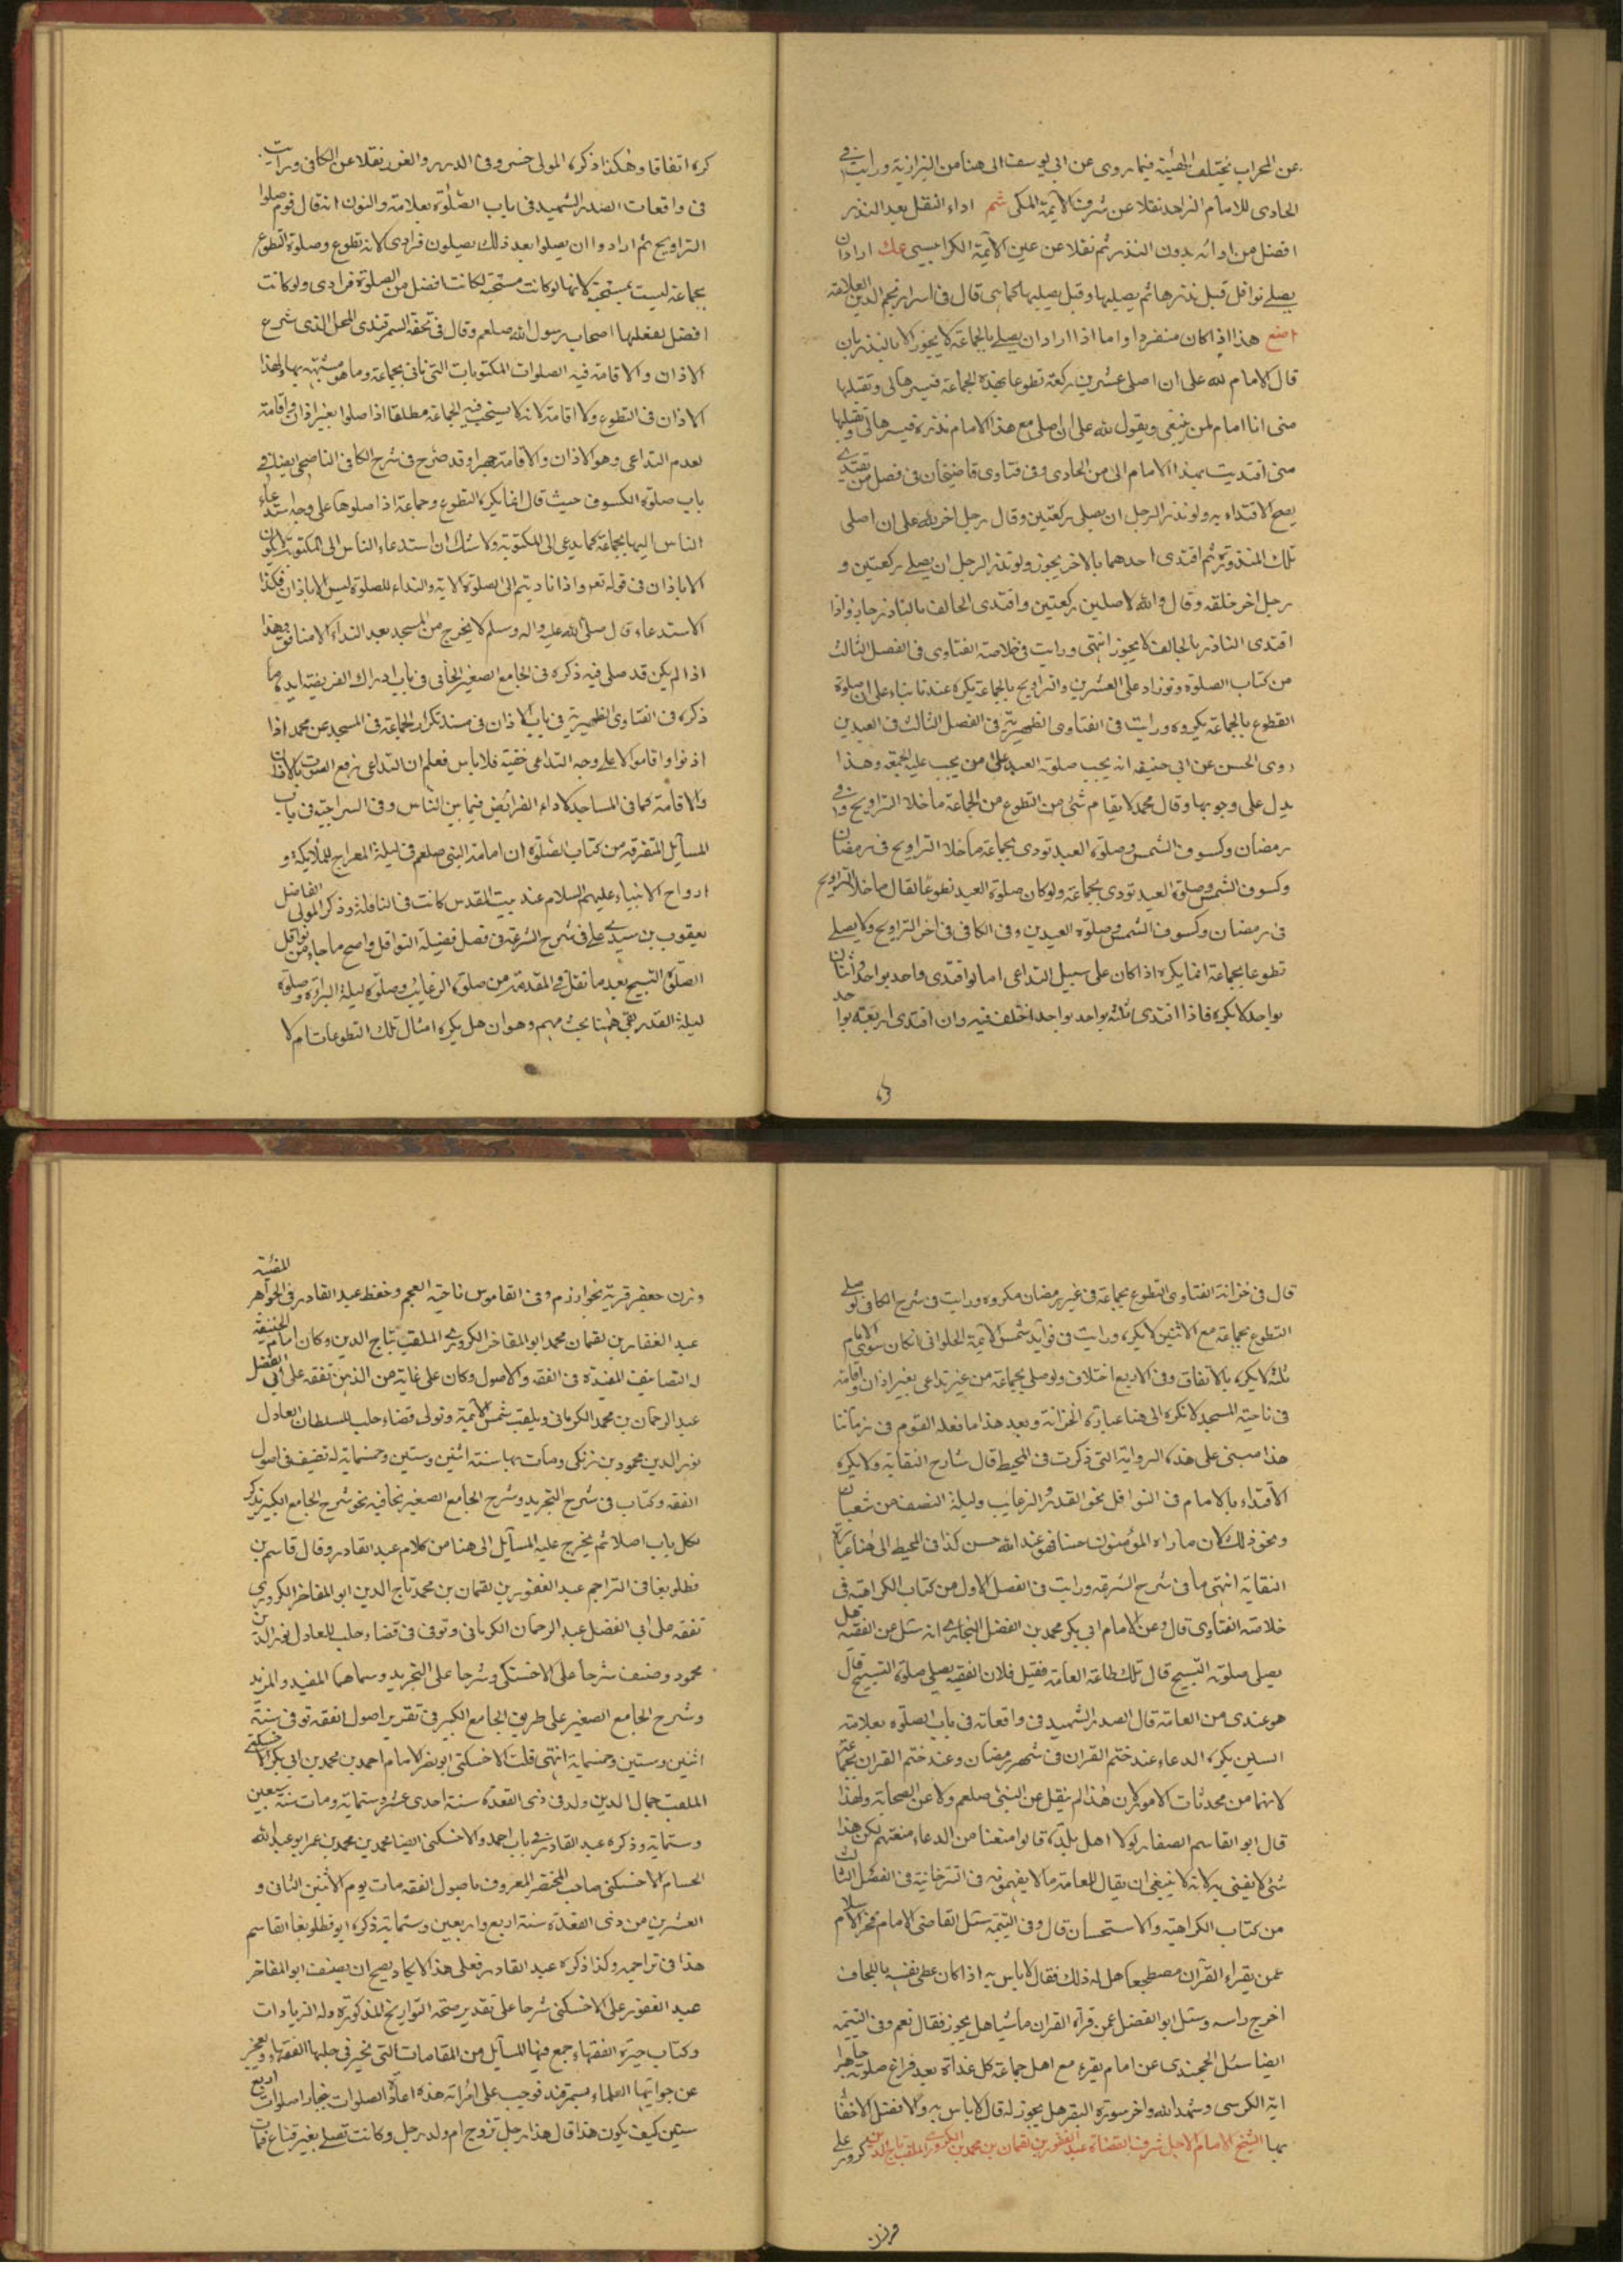 عن المحراب يختلف الهيئة فيما روى عن ابى يوسف الى هنا من البزازية ورايت فى
الحاوى للامام الزاهد نقلا عن شرف الايمة المكى شم اداء النفل بعد النذر
افضل من ادائه بدون النذر ثم نقلا عن عين الايمة الكرابيسى عك اراد ان
يصلى نوافل قبل نذرها ثم يصليها وقيل يصليها كما هى قال فى اسرار نجم الدين العلامة
هذا اذا كان منفردا واما اذا اراد ان يصلى بالجماعة لا يجوز الا بالنذر بان
قال الامام لله على ان اصلى عشرين ركعة تطوعا بهذه الجماعة فيسرها لى وتقبلها
منى انا امام لمن تبعنى ويقول لله على ان اصلى مع هذا الامام نذره فيسرها لى وتقبلها
منى اقتديت بهذا الامام الى من الحاوى وفى فتاوى قاضيخان فى فصل من
يصح الاقتداء به ولو نذر الرجل ان يصلى ركعتين وقال رجل اخر لله على ان اصلى
تلك المنذورة ثم اقتدى احدهما بالاخر يجوز ولو نذر الرجل ان يصلى ركعتين و
رجل اخر خلفه وقال والله لاصلين ركعتين واقتدى الحالف بالناذر جاز واذا
اقتدى الناذر بالحالف لا يجوز انتهى ورايت فى خلاصة الفتاوى فى الفصل الثالث
من كتاب الصلوة ولو زاد على العشرين والتراويح بالجماعة يكره عندنا بناء على ان صلوة
التطوع بالجماعة يكروه ورايت فى الفتاوى الظهيرية فى الفصل الثالث فى العيدين
روى الحسن عن ابى حنيفه انه يجب صلوة العيد على من يجب عليه الجمعة وهذا
يدل على وجوبها وقال محمد لا يقام شئ من التطوع من الجماعة ما خلا التراويح فى
رمضان وكسوف الشمس وصلوة العيد تودى بجماعة ما خلا التراويح فى رمضان
وكسوف الشمس وصلوة العيد تودى بجماعة ولو كان صلوة العيد تطوعا لقال ما خلا التراويح
فى رمضان وكسوف الشمس وصلوة العيدين وفى الكافى فى اخر التراويح ولا يصلى
تطوعا بجماعة انما يكره اذا كان على سبيل التداعى اما لو اقتدى واحد بواحد او اثنان
بواحد لا يكره فاذا اقتدى ثلثة بواحد اختلف فيه وان اقتدى اربعة بواحد
كره اتفاقا وهكذا ذكره المولى خسرو فى الدرر والغرر نقلا عن الكافى ورايت
فى واقعات الصدر الشهيد فى باب الصلوة بعلامة والنون انه قال قوم صلوا
التراويح ثم ارادوا ان يصلوا بعد ذلك يصلون فرادى لانه تطوع وصلوة التطوع
بجماعة ليست بمستحبة لانها لو كانت مستحبة لكانت افضل من الصلوة فرادى ولو كانت
افضل لفعلها اصحاب رسول الله صلعم وقال فى تحفة السمرقندى المحل الذى شرع
الاذان والاقامة فيه الصلوات المكتوبات التى تاتى بجماعة وما هو مشبه بها ولهذا
الاذان فى التطوع ولا اقامة لانه لا يستحب فيه الجماعة مطلقا اذا صلوا بغير اذان واقامة
لعدم التداعى وهو الاذان والاقامة جهرا وقد صرح فى شرح الكافى الناصحى ايضا فى
باب صلوة الكسوف حيث قال انما يكره التطوع وجماعة اذا صلوها على وجه استدعاء
الناس اليها بجماعة كما يدعى الى المكتوبة ولا شك ان استدعاء الناس الى المكتوبة لا يكون
الا باذان فى قوله تعم واذا ناديتم الى الصلوة الاية والنداء للصلوة ليس الا باذان فكذا
الاستدعاء قال صلى الله عليه واله وسلم لا يخرج من المسجد بعد النداء الا منافق وهذا
اذا لم يكن قد صلى فيه ذكره فى الجامع الصغير الخانى فى باب ادراك الفريضة
ذكره فى الفتاوى الظهيرية فى باب الاذان فى مسئله تكرار الجماعة فى المسجد عن محمد اذا
اذنوا واقاموا لا على وجه التداعى خفية فلا باس فعلم ان التداعى رفع الصوت بالاذان
والاقامة كما فى المساجد لاداء الفرائض فيما بين الناس وفى السراجية فى باب
المسآيل المتفرقه من كتاب الصلوة ان امامة النبى صلعم فى ليلة المعراج للملايكة و
ارواح الانبياء عليهم السلام عند بيت المقدس كانت فى النافلة وذكر المولى الفاضل
يعقوب بن سيدى على فى شرح الشرعة فى فصل فضيلة النوافل واصح ما جاء من نوافل
الصلوة التسبيح بعد ما نقل فى المقدمة من صلوة الرغايب وصلوة ليلة البراءة وصلوة
ليلة القدر بقى هاهنا بحث مهم وهو ان هل يكره امثال تلك التطوعات ام لا
قال فى خزانة الفتاوى التطوع بجماعة فى غير رمضان مكروه ورايت فى شرح الكافى لو صلى
التطوع بجماعة مع الاثنين لا يكره ورايت فى فوآيد شمس الايمة الحلوانى ان كان سوى الامام
ثلثة لا يكره بالاتفاق وفى الاربع اختلاف ولو صلى بجماعة من غير تداعى بغير اذان واقامة
فى ناحية المسجد لا تكره الى هنا عبارة الخزانة وبعد هذا ما فعله القوم فى زماننا
هذا مبنى على هذه الرواية التى ذكرت فى المحيط قال شارح النقاية ولا يكره
الاقتداء بالامام فى النوافل نحو القدر والرغايب وليلة النصف من شعبان
ونحو ذلك لان ما راه المؤمنون حسنا فهو عند الله حسن كذا فى المحيط الى هنا عبارة
النقاية انتهى ما فى شرح الشرعة ورايت فى الفصل الاول من كتاب الكراهة فى
خلاصة الفتاوى قال وعن الامام ابى بكر محمد بن الفضل البخارى انه سئل عن الفقيه هل
يصلى صلوة التسبيح قال تلك طاعة العامة فقيل فلان الفقيه يصلى صلوة التسبيح قال
هو عندى من العامة قال الصدر الشهيد فى واقعاته فى باب الصلوة بعلامة
السين يكره الدعاء عند ختم القران فى شهر رمضان وعند ختم القران بجماعة
لانها من محدثات الامور لان هذا لم ينقل عن النبى صلعم ولا عن الصحابة ولهذا
قال ابو القاسم الصفار لولا اهل بلدة قالوا منعنا من الدعاء منعتهم لكن هذا
شئ لا يفتى به لانه لا ينبغى ان يقال للعامة ما لا يفهمونه فى التترخانية فى الفصل الثالث
من كتاب الكراهية والاستحسان قال وفى اليتيمة سئل القاضى الامام فخر الاسلام
عمن يقراء القرآن مضطجعا هل له ذلك فقال لا باس به اذا كان غطى نفسه باللحاف
اخرج راسه وسئل ابو الفضل عمن قرآء القران ماشيا هل يجوز فقال نعم وفى اليتيمة
ايضا سئل الخجندى عن امام يقرء مع اهل جماعة كل غداة بعد فراغ صلوته جاهرا
اية الكرسى وشهد الله واخر سورة البقر هل يجوز له قال لا باس به والافضل الاخفاء
بها الشيخ الامام الاجل شرف القضاة عبد الغفور بن لقمان بن محمد بن الكردرى الملقب بتاج الدين
وزن جعفر قرية بخوارزم وفى القاموس ناحية العجم وحفظ عبد القادر فى الجواهر المضيئة
عبد الغفار بن لقمان محمد ابو المفاخر الكردرى الملقب بتاج الدين وكان امام الحنيفة
له التصانيف المفيدة فى الفقه والاصول وكان على غاية من الذهن تفقه على ابى الفضل
عبد الرحمان بن محمد الكرمانى ويلقب شمس الايمة وتولى قضاء حلب للسلطان العادل
نور الدين محمود بن زنكى ومات بها سنة اثنين وستين وخمسماية له تصنيف فى اصول
الفقه وكتاب فى شرح التجريد وشرح الجامع الصغير نحا فيه نحو شرح الجامع الكبير يذكر
لكل باب اصلا ثم يخرج عليه المسآيل الى هنا من كلام عبد القادر وقال قاسم بن
قطلوبغا فى التراجم عبد الغفور بن لقمان بن محمد تاج الدين ابو المفاخر الكردرى
تفقه على ابى الفضل عبد الرحمان الكرمانى وتوفى فى قضاء حلب للعادل نور الدين
محمود وصنف شرحا على الاخسيكتى وشرحا على التجريد وسماهما المفيد والمزيد
وشرح الجامع الصغير على طريق الجامع الكبير فى تقدير اصول الفقه توفى سنة
اثنين وستين وخمسماية انتهى قلت الاخسكتى ابو نصر الامام احمد بن محمد بن ابى بكر الاخسكتى
الملقب جمال الدين ولد فى ذى القعدة سنة احدى عشر وستماية ومات سنة سبعين
وستماية وذكره عبد القادر فى باب احمد والاخسكتى ايضا محمد بن محمد بن عمر ابو عبد الله
الحسام الاخسكتى صاحب المختصر المعروف باصول الفقه مات يوم الاثنين الثانى و
العشرين من ذى القعدة سنة اربع واربعين وستماية ذكره ابو قطلوبغا القاسم
هذا فى تراجمه وكذا ذكره عبد القادر فعلى هذا لا يكاد يصح ان يصنف ابو المفاخر
عبد الغفور على الاخسكتى شرحا على تقدير صحة التواريخ المذكورة وله الزيادات
وكتاب حيرة الفقهاء جمع فيها المسآيل من المقامات التى تحير فى حلها الفقهاء ويعجز
عن جوابها العلماء بسمرقند فوجب على امراته هذه اعادة الصلوات بخارا صلوات اربع
سنين كيف يكون هذا قال هذا رجل تزوج ام ولد رجل وكانت تصلى بغير قناع فمات